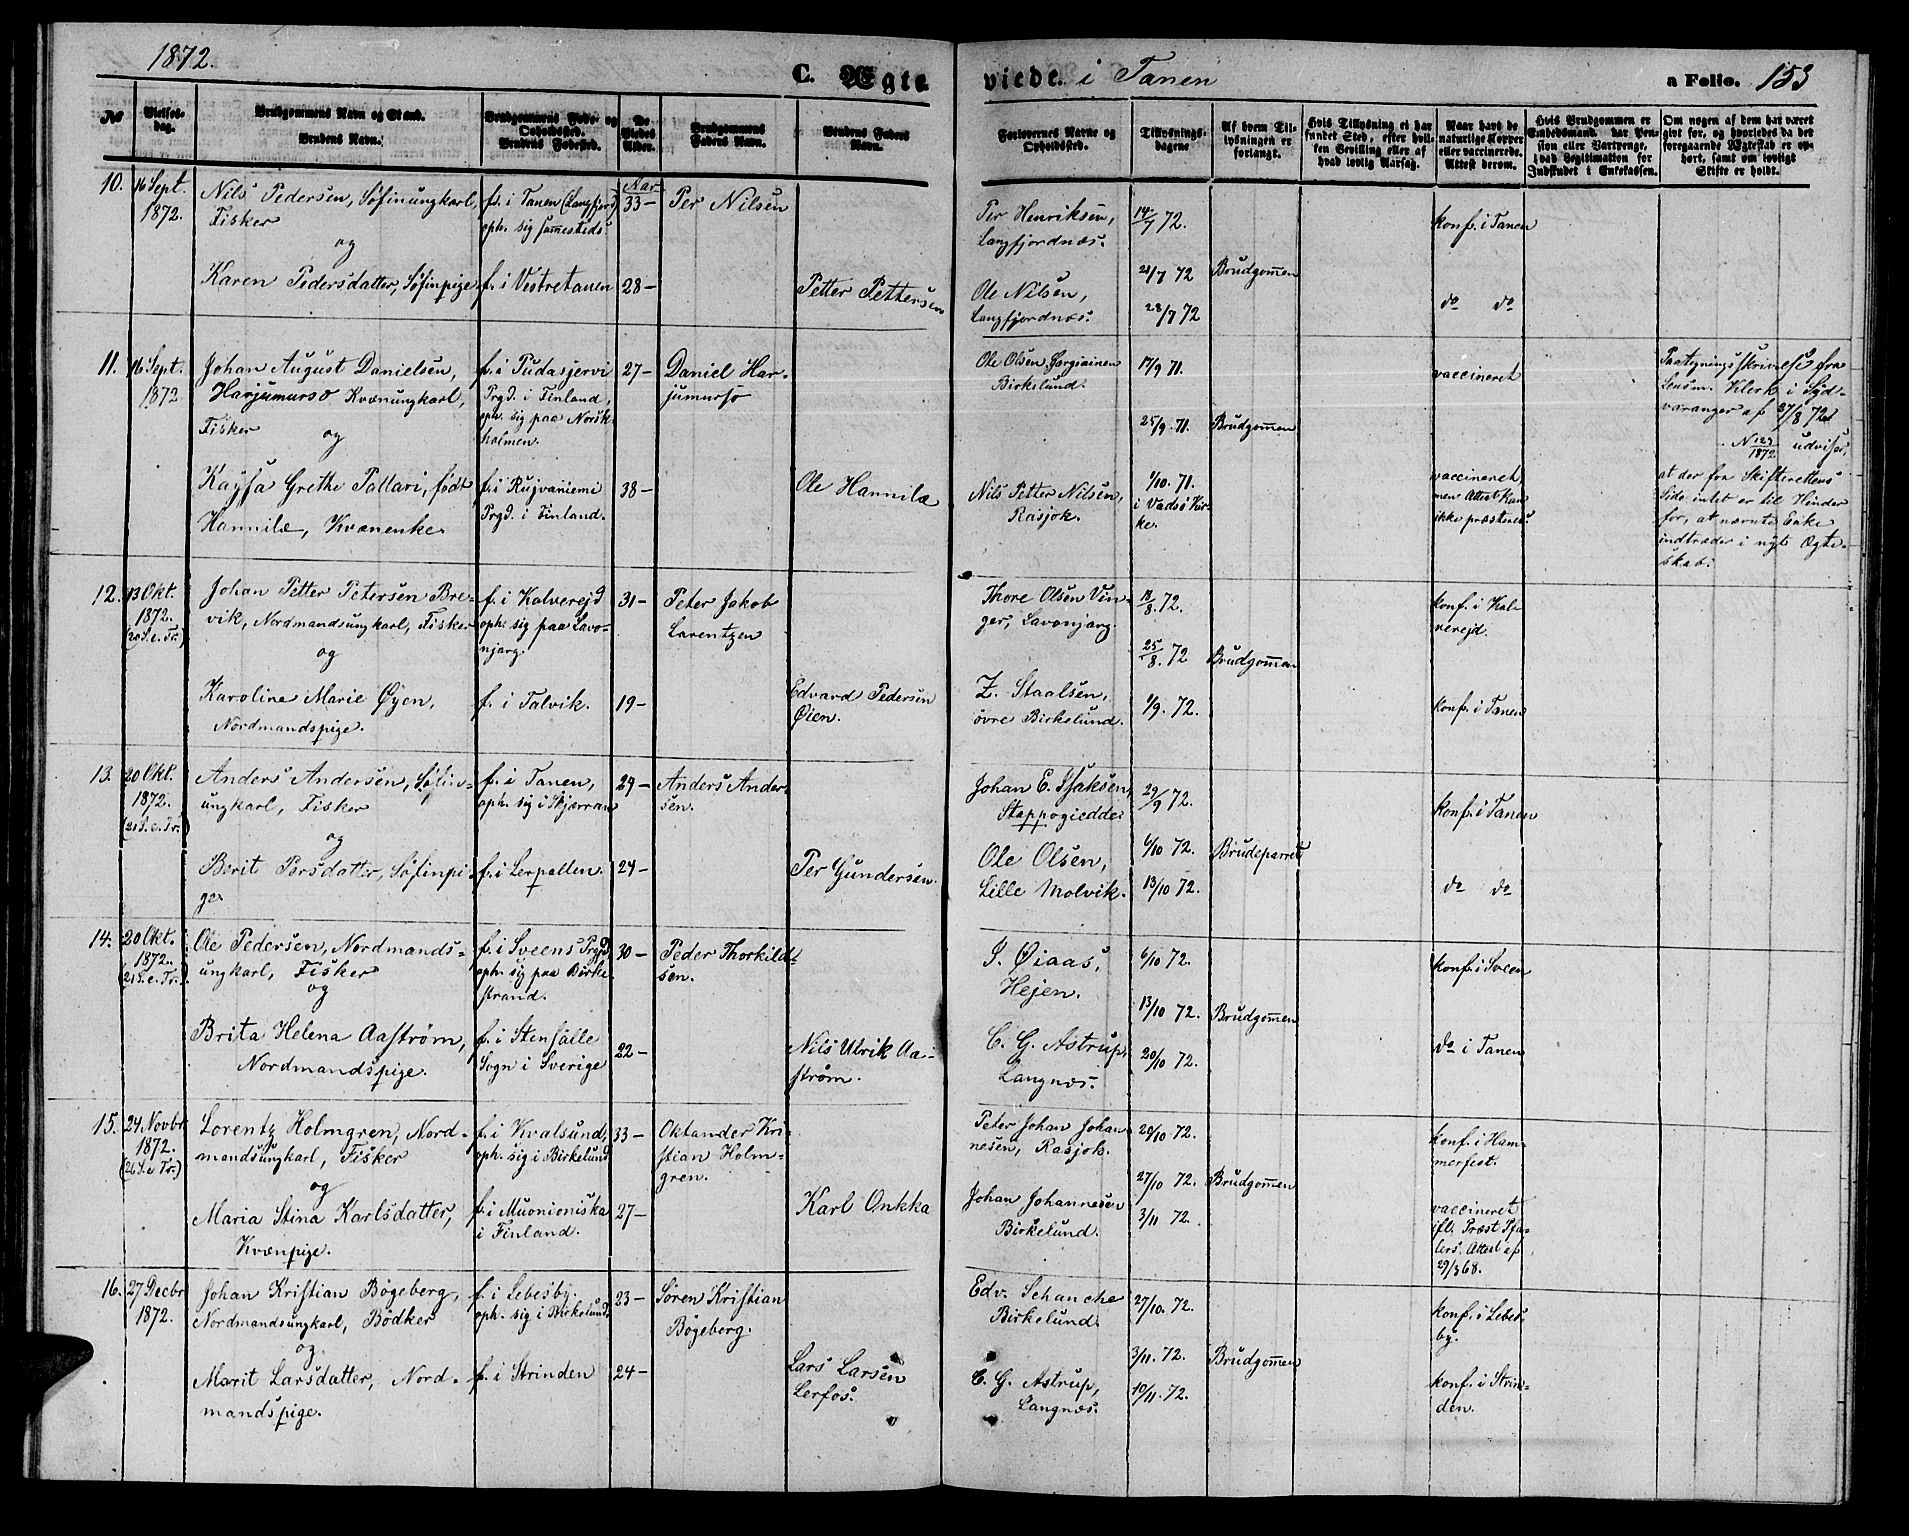 1872.
C. Ægte viede. i Tanen
a Folio. 153
No
Vielses-
dag.
Brudgommens Navn og Stand.
Brudens Navn.
Brudgommens Føde- og
Opholdssted.
Brudens Fødested.
De
Viedes
Alder.
Brudgommens
Faders Navn.
Brudens Faders
Navn.
Forlovernes Navne og
Opholdssted.
Tillysnings-
dagene
Af hvem Til-
lysningen er
forlangt.
Hvis Tillysning ei har
fundet Sted, efter hvil-
ken Bevilling eller af
hvad lovlig Aarsag.
Naar havt de
naturlige Kopper
eller vaccinerede.
Attest derom.
Hvis Brudgommen er
Embedsmand, har Pen-
sion eller Vartpenge,
hvad Legitimation for
Indskudet i Enkekassen.
Om nogen af dem har været
gift før, og hvorledes da det
foregaaende Ægteskab er op-
hørt, samt om lovligt
Skifte er holdt.
10.
16 Sept.
1872.
Nils Pedersen, Søfinungkarl,
Fisker
og
Karen Pedersdatter, Søfinpige
f. i Tanen (Langfjord)
oph. sig samesteds
f. i Vestretanen
Aar
33 –
28 –
Per Nilsen
Petter Pettersen
Per Henriksen,
Langfjordnæs.
Ole Nilsen,
Langfjordnæs.
14/7 72.
21/7 72
28/7 72
Brudgommen
konf. i Tanen
do do
11.
16 Sept.
1872
Johan August Danielsen,
Harjumurso Kvænungkarl,
Fisker
og
Kaysa Grethe Pallari, født
Hannilæ, Kvænenke
f. i Pudasjervi
Prgd. i Finland,
oph. sig paa Norsk-
holmen.
f. i Rujvaniemi
Prgd. i Finland.
27 –
38 –
Daniel Har-
jumurso
Ole Hannila
Ole Olsen Jorgiainen
Birkelund.
Nils Petter Nilsen,
Rasjok.
17/9 71.
25/9. 71.
1/10. 71.
i Vadsø Kir-
ke.
Brudgommen
vaccineret
vaccineret
men Attest kan
ikke præsteres.
Paategningsskrivelse fra
Lensm. Klerk i Syd-
varanger af 27/8 72
N 129/1872 udviser,
at der fra Skifterettens
Side intet er til Hinder
for, at nævnte Enke
indtræder i nyt Ægte-
skab.
12.
13 Okt.
1872.
(20 S. e. Tr.)
Johan Petter Petersen Bre-
vik, Nordmandsungkarl, Fisker
og
Karoline Marie Øyen,
Nordmandspige.
f. i Kolverejd
oph. sig paa Lavo-
njarg.
f. i Talvik.
31 –
19 –
Peter Jakob
Larentzen
Edvard Pedersen
Øien.
Thore Olsen Vin-
ger, Lavonjarg.
Z. Staalsen,
øvre Birkelund.
18/8. 72.
25/8. 72
1/9. 72.
Brudgommen
konf. i Kol-
verejd.
konf. i Tanen
13.
20 Okt.
1872.
(21 S. e. Tr.)
Anders Andersen, Søfin-
ungkarl, Fisker
og
Berit Persdatter, Søfinpi-
ge
f. i Tanen,
oph. sig i Skjærran
f. i Lerpollen.
29 –
24 –
Anders Ander-
sen.
Per Gundersen.
Johan E. Isaksen,
Stappogiedde
Ole Olsen,
Lille Molvik.
29/9 72.
6/10 72.
13/10 72.
Brudeparret
konf. i Tanen
do do
14.
20 Okt.
1872.
(21 S. e. Tr.)
Ole Pedersen, Nordmands-
ungkarl, Fisker
og
Brita Helena Aastrøm,
Nordmandspige.
f. i Sveens Prgd.
oph. sig paa Birke-
strand.
f. i Stensälle
Sogn i Sverige
30 –
22 –
Peder Thorkild-
sen.
Nils Ulrik Aa-
strøm.
J. Øiaas,
Hejen.
C. G. Astrup,
Langnæs.
6/10 72.
13/10 72.
20/10 72.
Brudgommen
konf. i Sveen
do i Tanen
15.
24 Novbr
1872.
(26 S. e. Tr.)
Lorentz Holmgren, Nord-
mandsungkarl, Fisker
og
Maria Stina Karlsdatter,
Kvænpige.
f. i Kvalsund,
oph. sig i Birkelund
f. i Muonioniska
i Finland.
33 –
27 –
Oktander Kri-
stian Holm-
gren.
Karl Onkka
Peter Johan Johan-
nesen, Rasjok.
Johan Johannesen
Birkelund.
20/10 72.
27/10 72.
3/11 72.
Brudgommen
konf. i Ham-
merfest.
vaccineret
ifl. Præst Pfa-
lers. Attest af
29/3 68.
16.
27 Decbr
1872.
Johan Kristian Bøgeberg,
Nordmandsungkarl, Bødker
og
Marit Larsdatter, Nord-
mandspige.
f. i Lebesby.
oph. sig i Birkelund.
f. i Strinden
23 –
24 –
Søren Kristian
Bøgeberg.
Lars Larsen
Lerfos.
Edv. Schanche
Birkelund.
C. G. Astrup,
Langnæs.
27/10. 72.
3/11. 72.
10/11. 72.
Brudgommen
konf. i Lebes-
by.
konf. i Strin-
den.